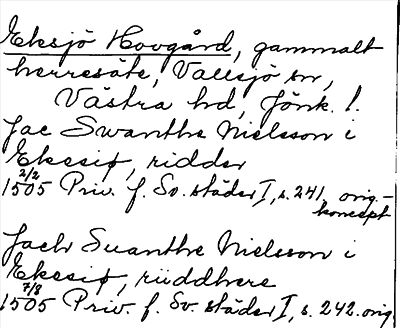 Eksjö Hovgård, gammalt
herresäte, Vallsjö sn,
Västra hd, Jönk. l.
Jac Swanthe Nielsson i
Ekesiø, ridder
2/2
1505 Priv. f. Sv. städer I, s. 241, orig.-
koncept
Jach Suanthe Nielsson i
Ekesiø, riiddhere
7/8
1505 Priv. f. Sv. städer I, s. 242. orig.